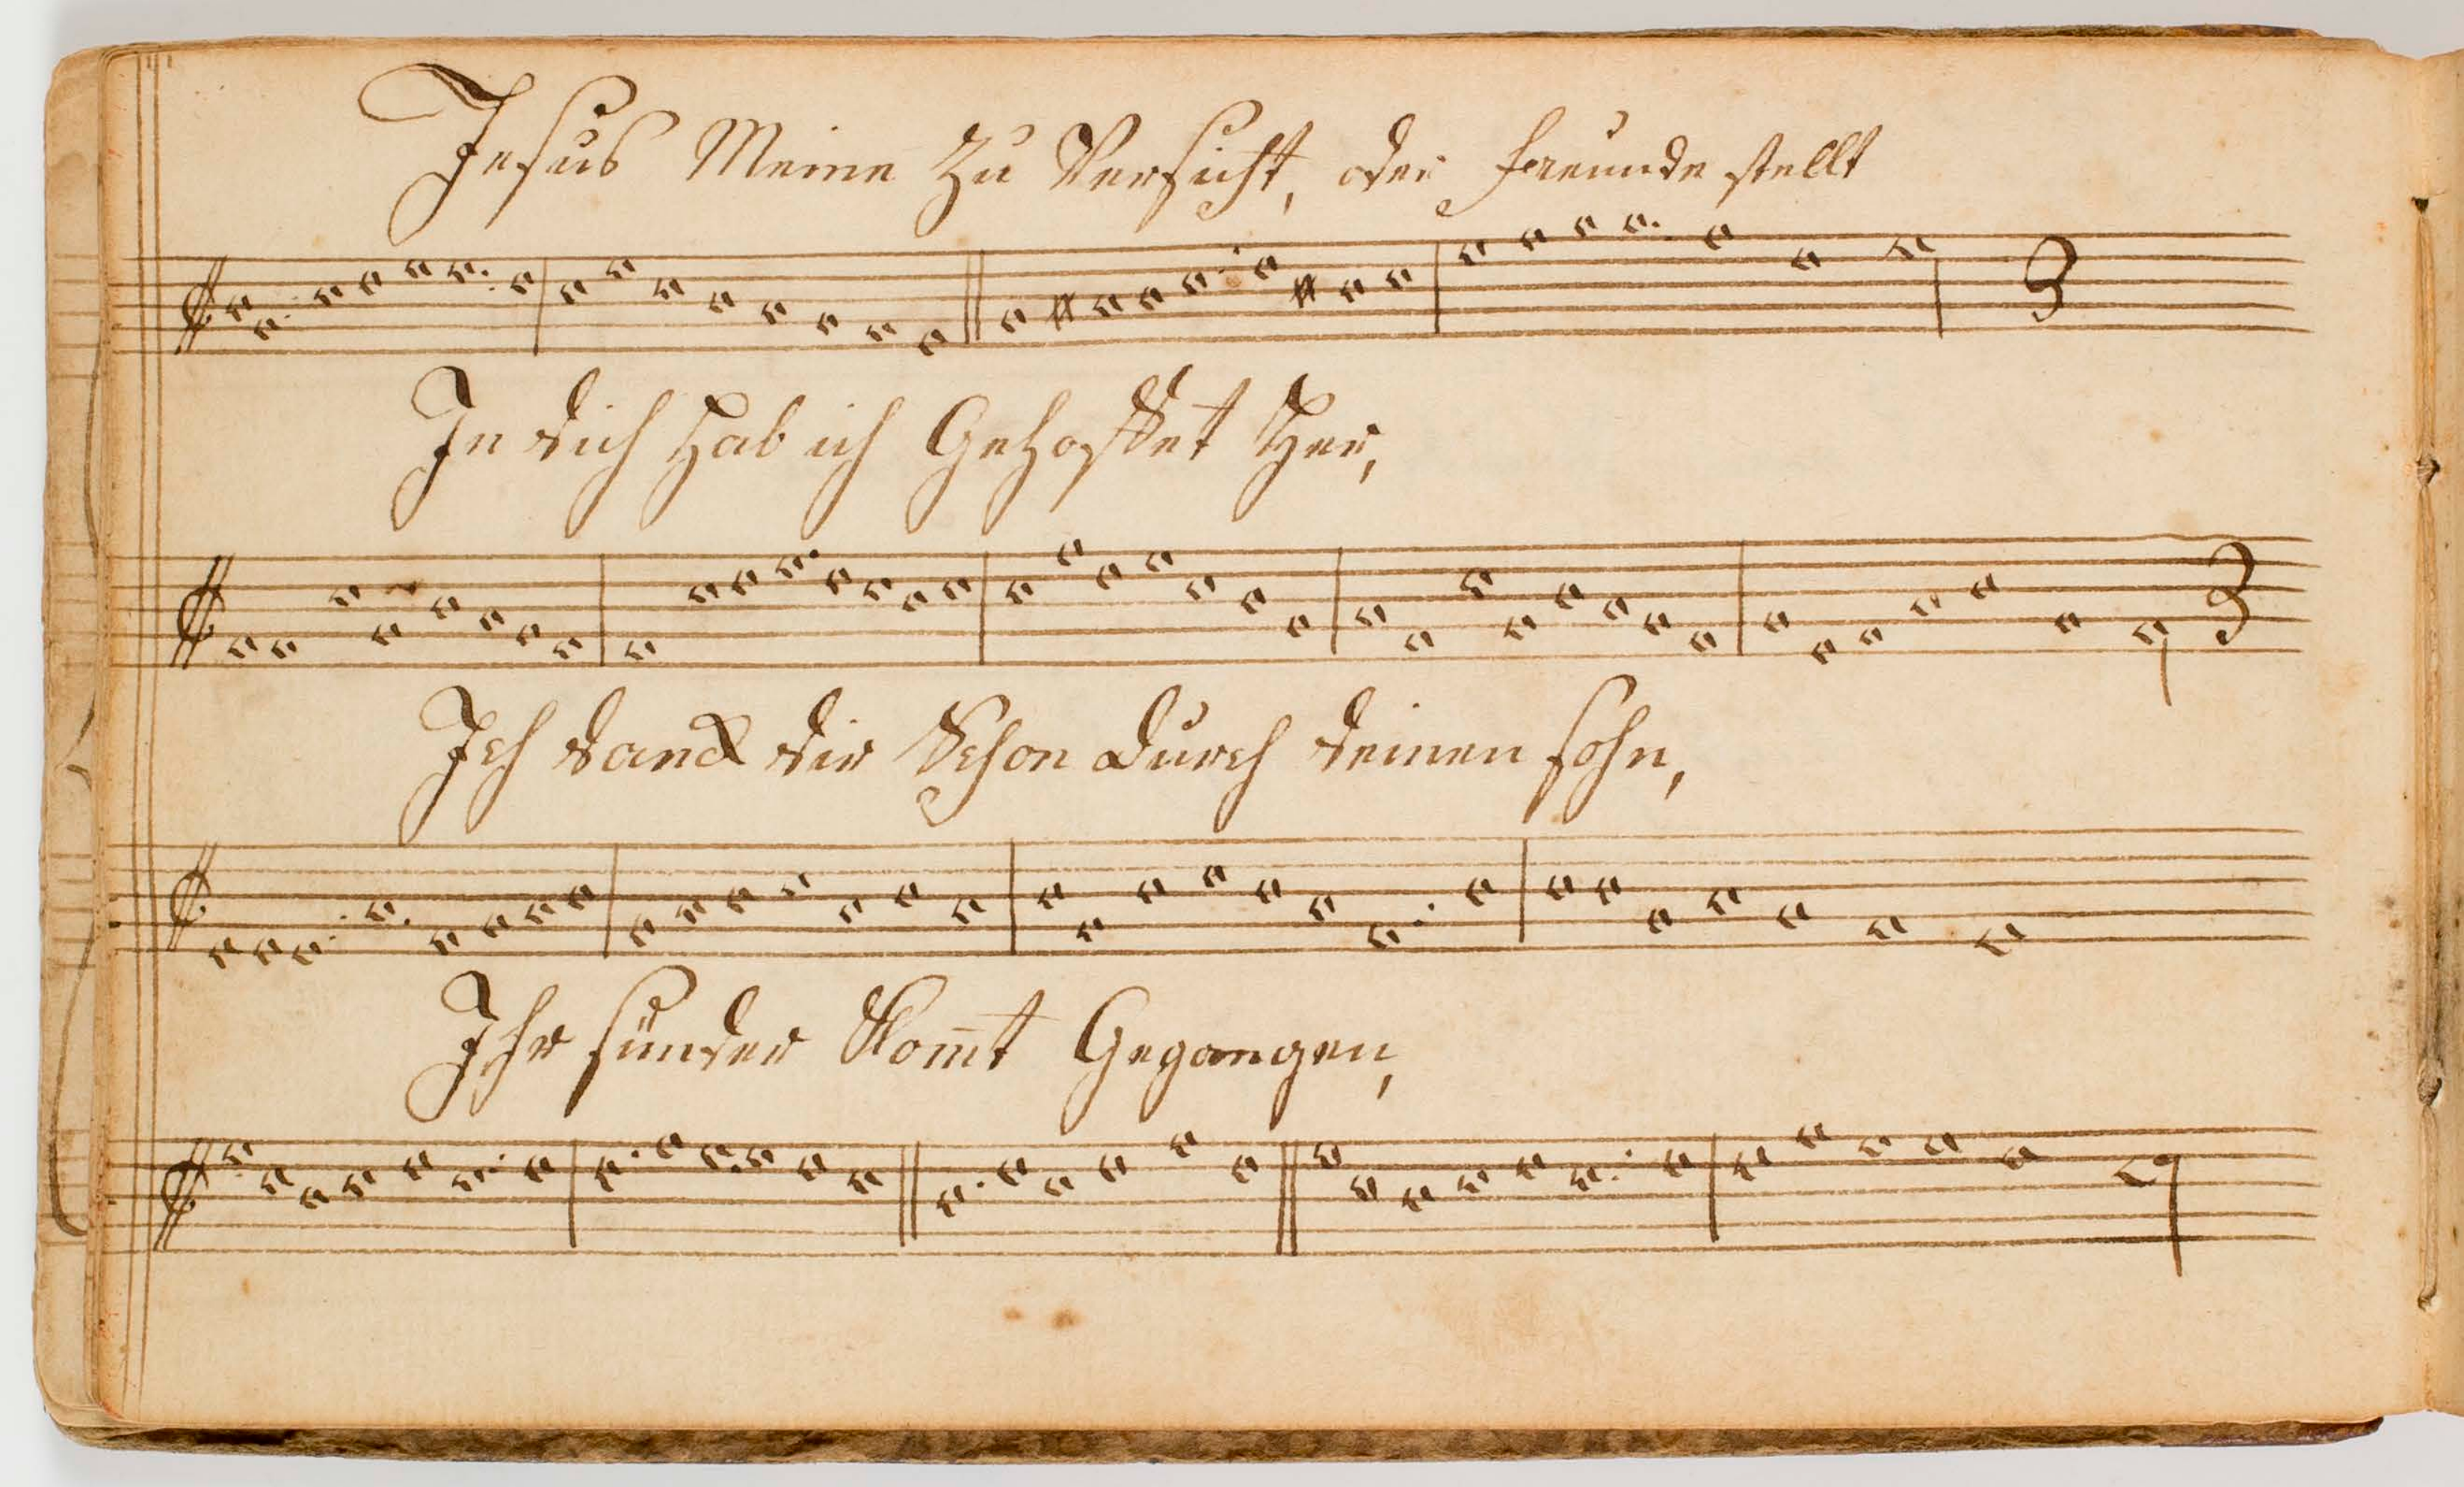 Jesus Meine Zu Versicht, oder Freunde stellt
3
In dich Hab ich Gehoffet Her,
3
Ich danck dir Schon durch deinen sohn,
Ihr sünder Kom̄t Gegangen,